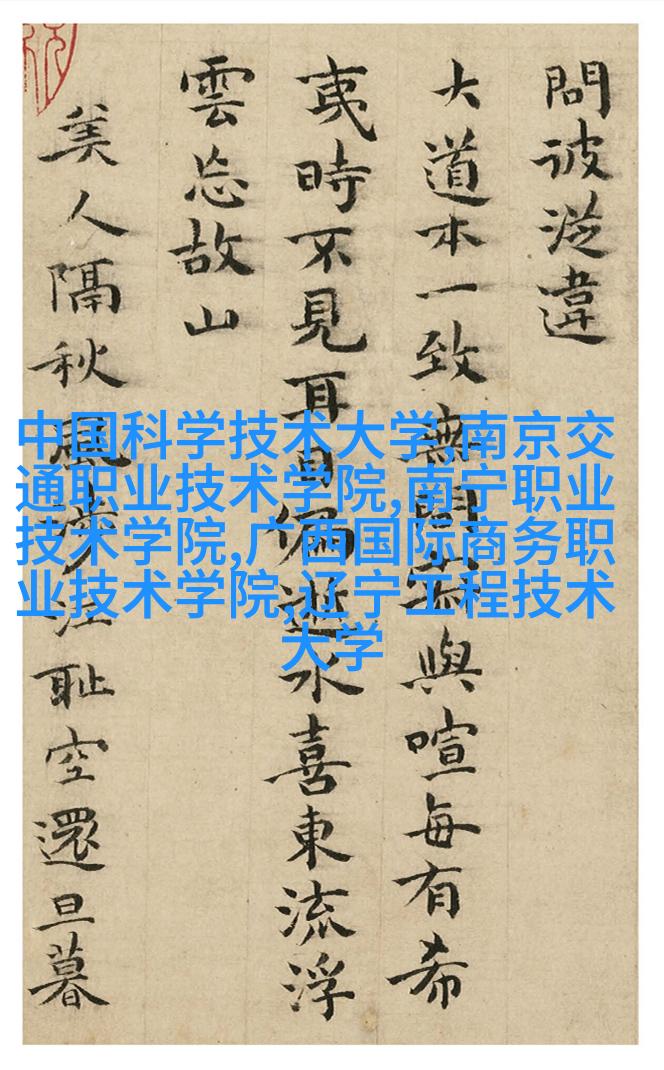 問彼違
大道本一致無與喧每有希
夷時不見耳目偏逝水喜東流浮
雲忘故山
美人隔秋風涉江恥空還旦暮
中国科学技术大学,南京交
通职业技术学院,南宁职业
技术学院,广西国际商务职
业技术学院,辽宁工程技术
大学